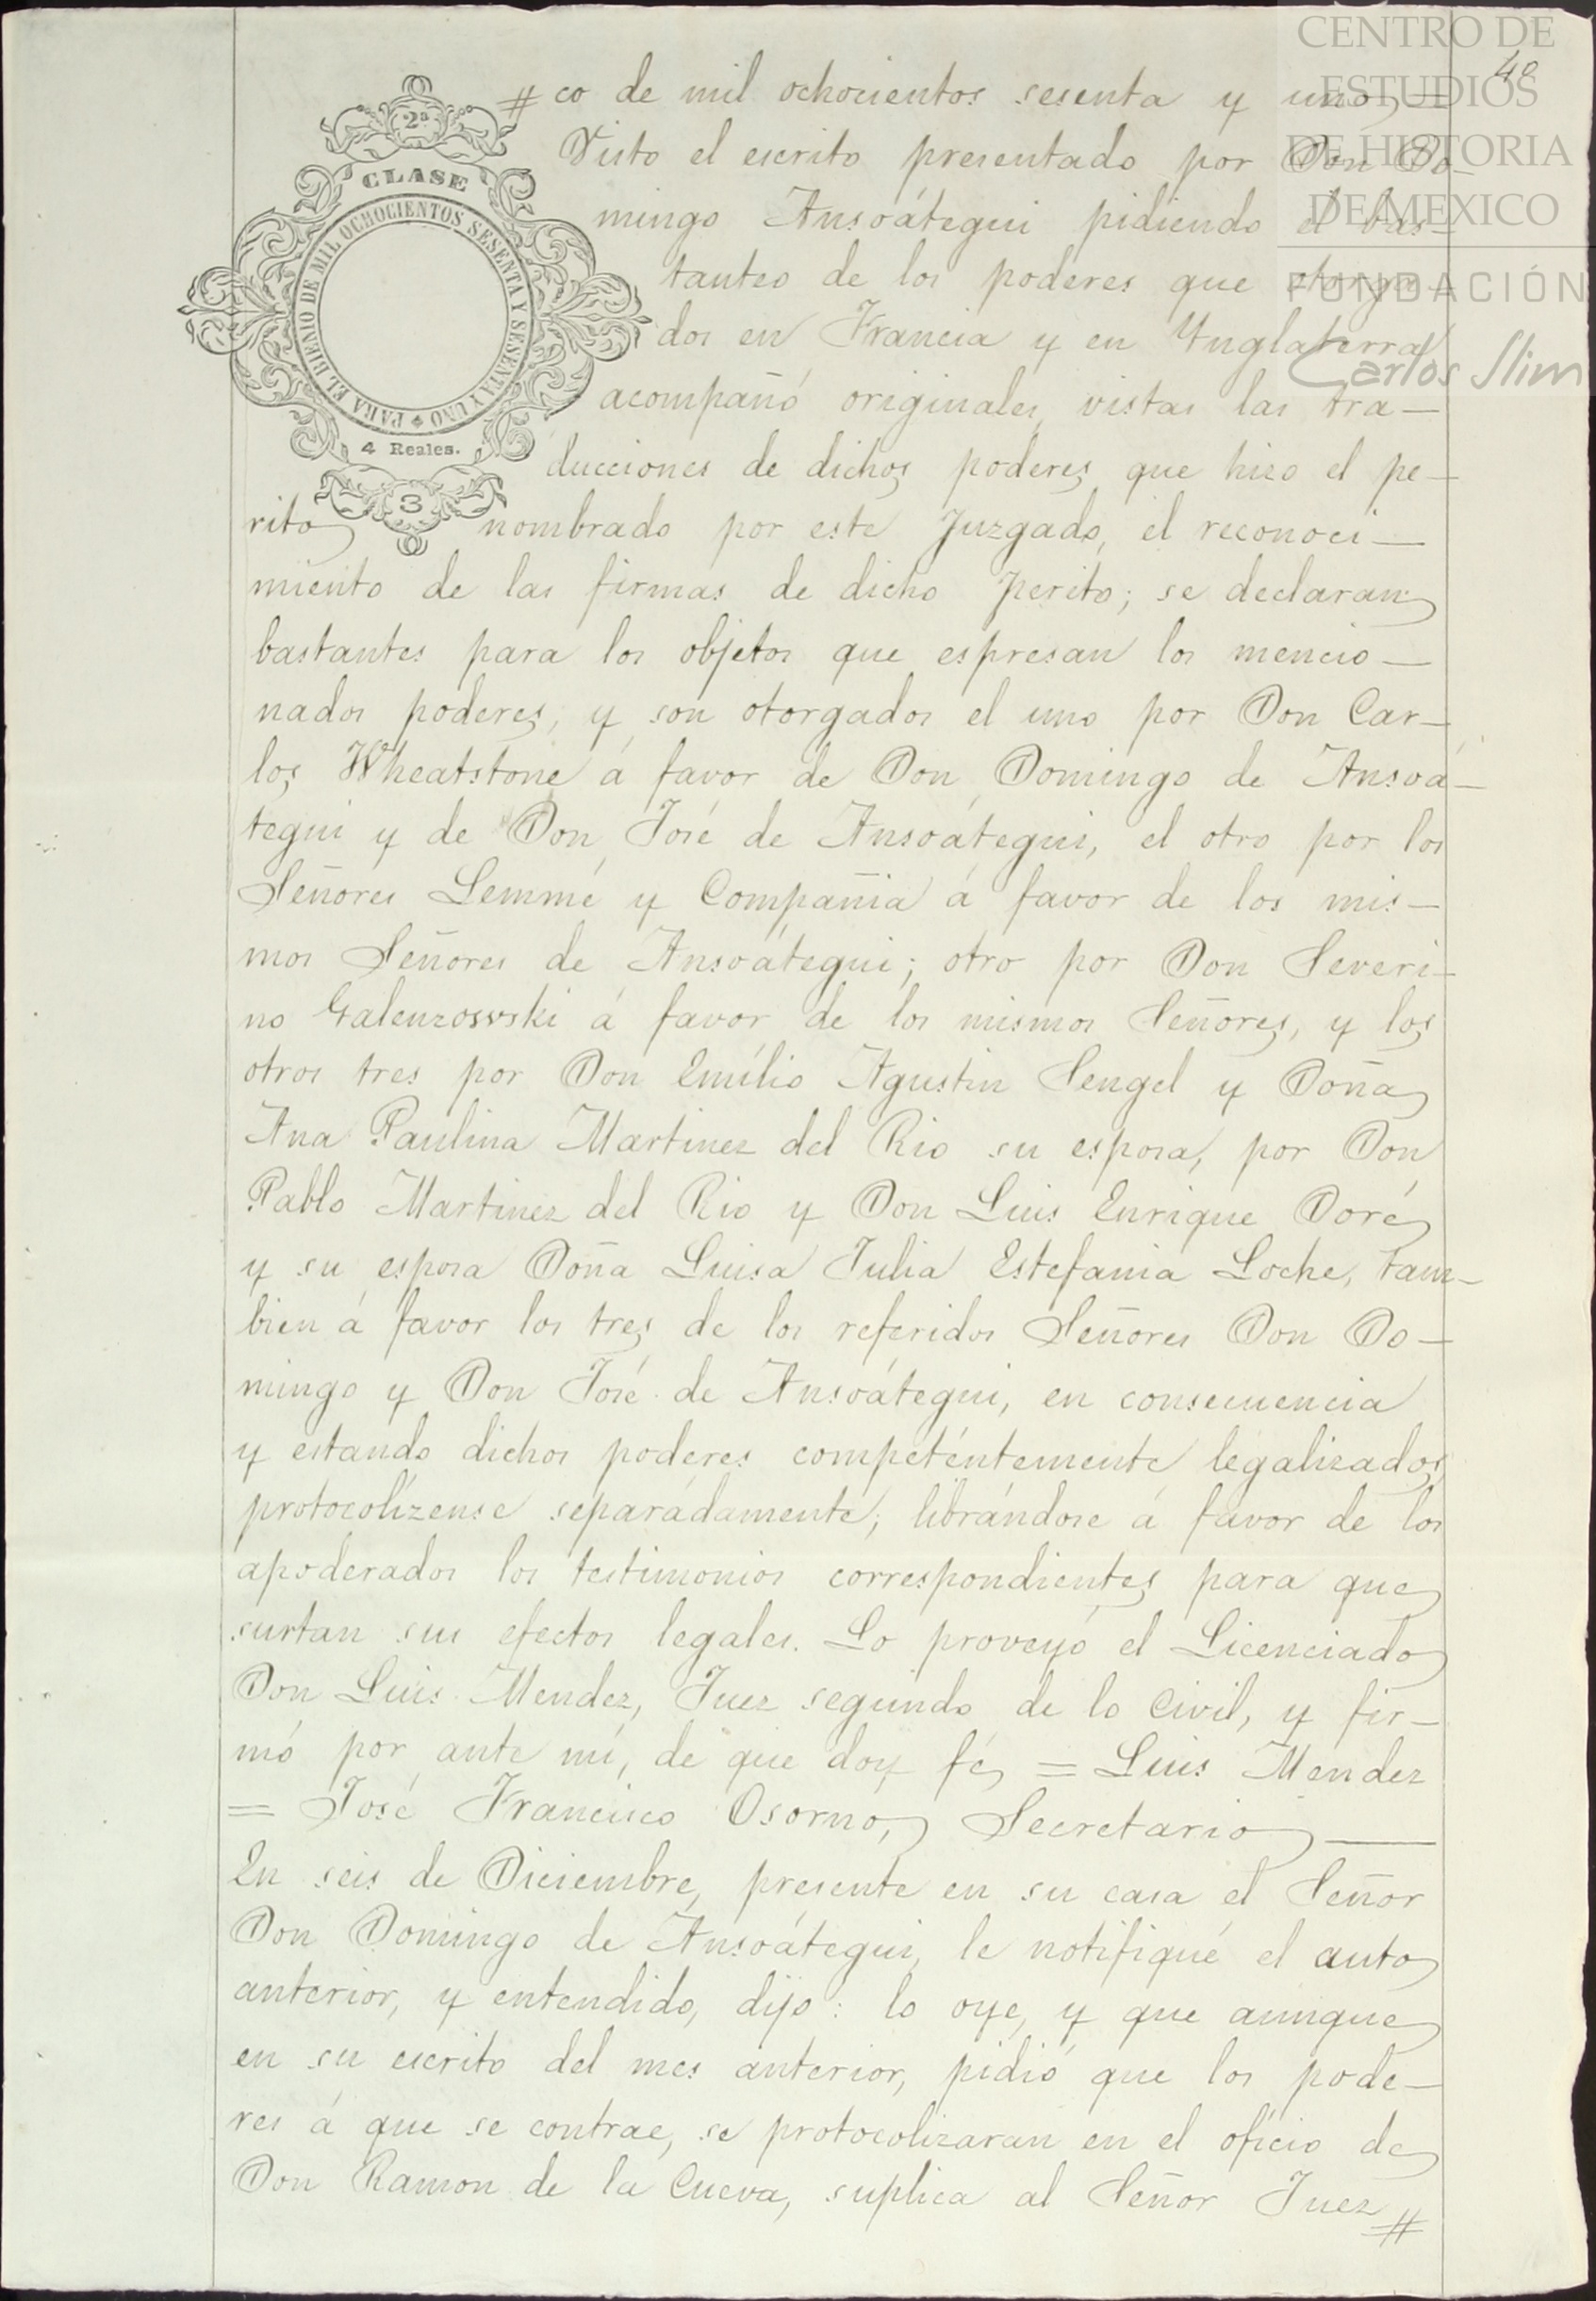 CENTRO DE
ESTUDIOS
DE HISTORIA
DE MEXICO
FUNDACIÓN
Carlos Slim
48
2ª
CLASE
PARA EL BIENIO DE MIL OCHOCIENTOS SESENTA Y SESENTA Y UNO
4 Reales.
3
# co de mil ochocientos sesenta y uno,—
Visto el escrito presentado por Don Do-
mingo Ansoátegui pidiendo el bas-
tanteo de los poderes que otorga-
dos en Francia y en Ynglaterra
acompañó originales, vistas las tra—
ducciones de dichos poderes que hizo el pe—
rito nombrado por este Juzgado, el reconoci—
miento de las firmas de dicho perito; se declaran
bastantes para los objetos que espresan los mencio—
nados poderes, y son otorgados el uno por Don Car—
los Wheatstone á favor de Don Domingo de Ansoá—
tegui y de Don José de Ansoátegui, el otro por los
Señores Lemmé y Compañia á favor de los mis—
mos Señores de Ansoátegui; otro por Don Severi—
no Galenzowski á favor de los mismos Señores, y los
otros tres por Don Emílio Agustin Sengel y Doña
Ana Paulina Martinez del Rio su esposa, por Don
Pablo Martinez del Rio y Don Luis Enrique Doré
y su esposa Doña Luisa Julia Estefania Loche, tam—
bien á favor los tres de los referidos Señores Don Do—
mingo y Don José de Ansoátegui, en consecuencia
y estando dichos poderes competéntemente legalizados,
protocolízense separádamente, librándose á favor de los
apoderados los testimonios correspondientes para que
surtan sus efectos legales. Lo proveyó el Licenciado
Don Luis Mendez, Juez segundo de lo Civil, y fir—
mó por ante mí, de que doy fé, = Luis Mendez
= José Francisco Osorno, Secretario ——
En seis de Diciembre, presente en su casa el Señor
Don Domingo de Ansoátegui, le notifiqué el auto
anterior, y entendido, dijo: lo oye, y que aunque
en su escrito del mes anterior, pidió que los pode—
res á que se contrae, se protocolizaran en el oficio de
Don Ramon de la Cueva, suplica al Señor Juez #